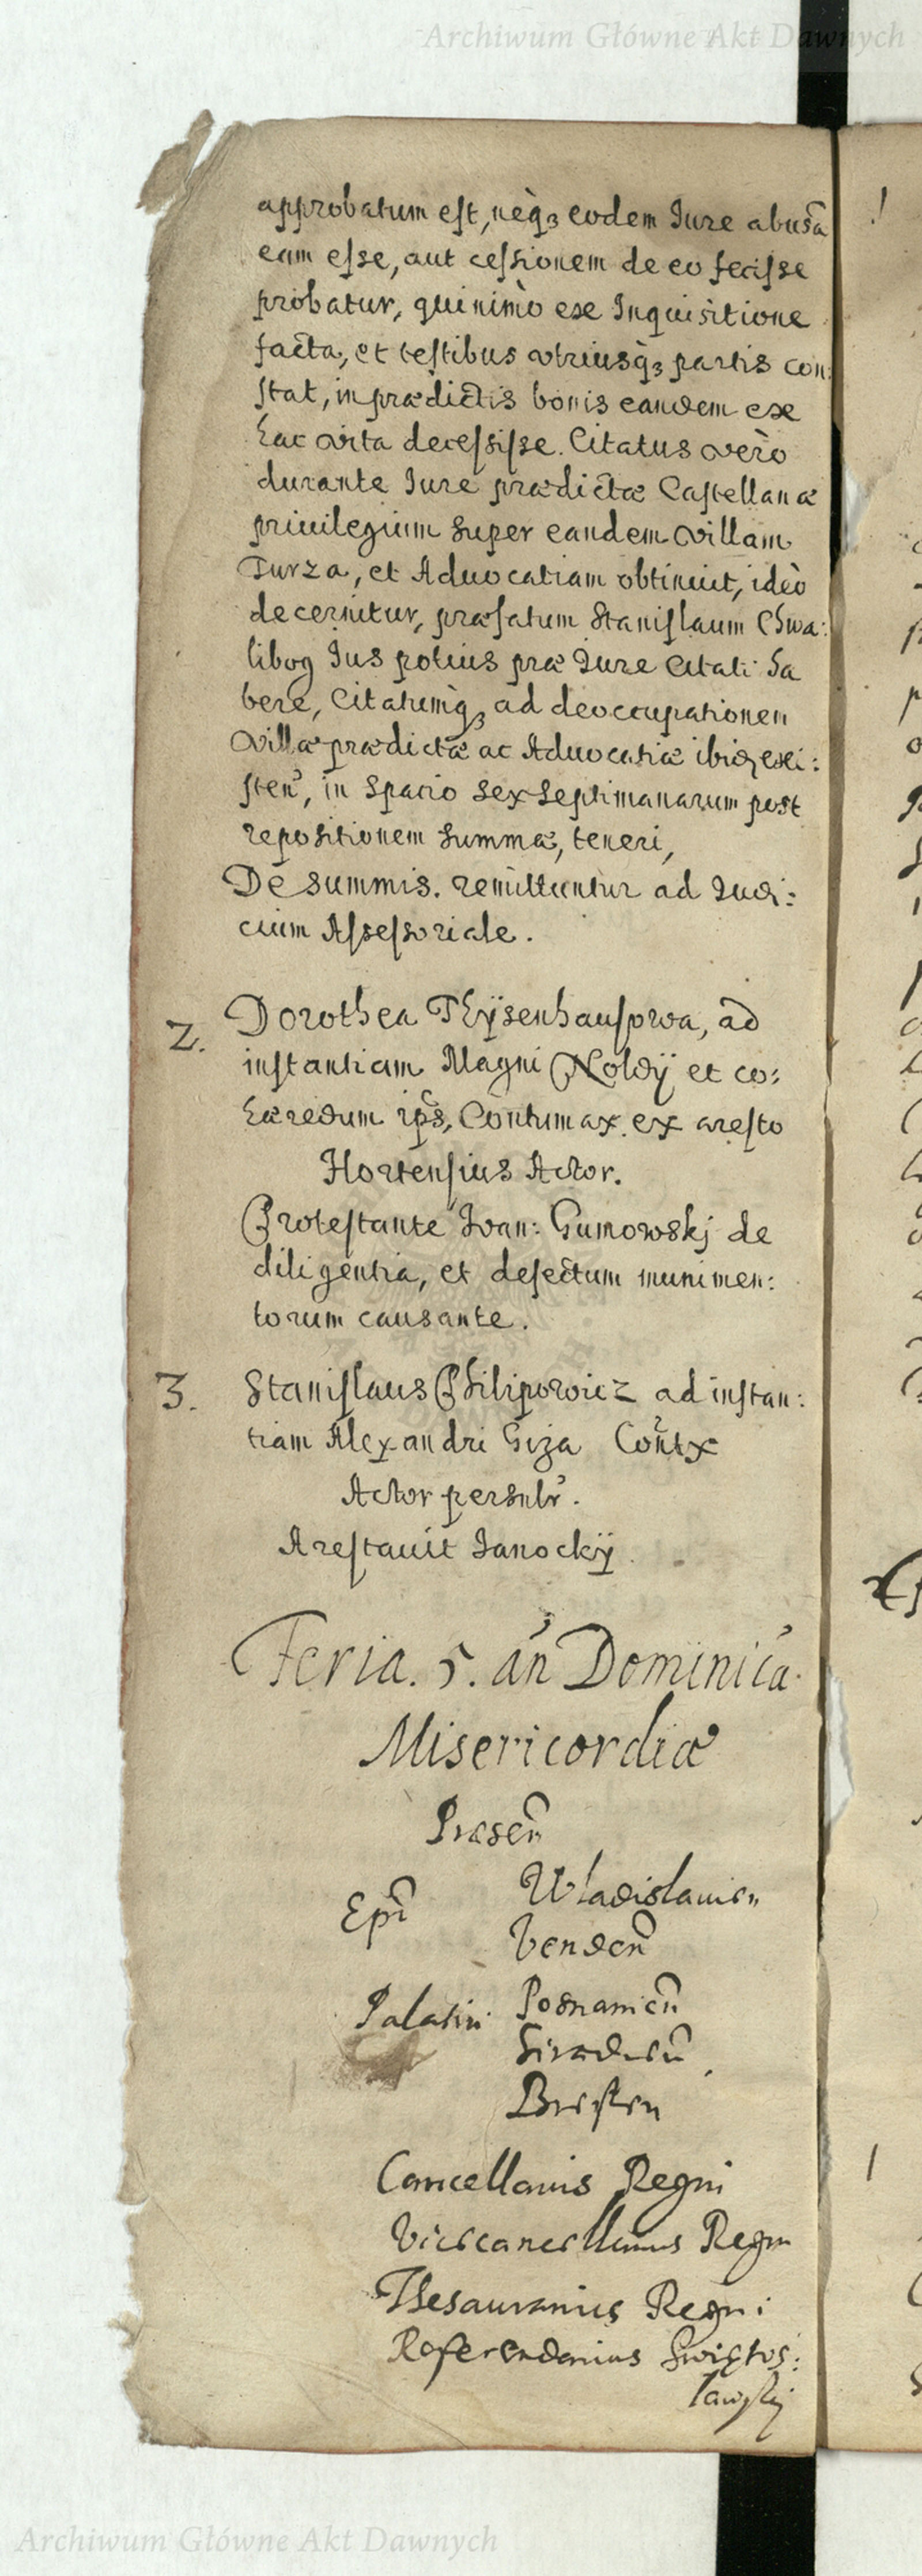 Archiwum Główne Akt Dawnych
approbatum est, neq3 eodem Iure abusã
eam esse, aut cessionem de eo fecisse
probatur, quinimò exe Inquisitione
facta, et testibus vtriusq3 partis con:
stat, in prædictis bonis eandem exe
hac vita decessisse. Citatus verò
durante Iure prædictæ Castellanæ
priuilegium super eandem villam
Turza, et Aduocatiam obtinuit, ideò
decernitur, præfatum Stanislaum Chwa:
libog Ius potius præ Iure Citati ha
bere, Citatumq3 ad deoccupationem
villæ prædictæ ac Aduocatiæ ibid exi:
sten, in Spacio sex septimanarum post
repositionem summæ, teneri,
De summis. remittuntur ad Iudi:
cium Assessoriale.
2. Dorothea Thÿsenhausowa, ad
instantiam Magni Noldÿ et co:
hæredum ips, Contumax ex aresto
Hortensius Actor.
Protestante Ioan: Gumowskj de
diligentia, et defectum munimen:
torum causante.
3. Stanislaus Philipowicz ad instan:
tiam Alexandri Giza Contx
Actor
Arestauit Janockÿ
Feria. 5. añ Dominica
Misericordiæ
Præsen
Epi Wladislauien
Venden
Palatini Posnanien
Siradien
Bresten
Cancellarius Regni
Vicecancellarius Regni
Thesaurarius Regni
Referendarius Swiętos:
lawskj
Archiwum Główne Akt Dawnych